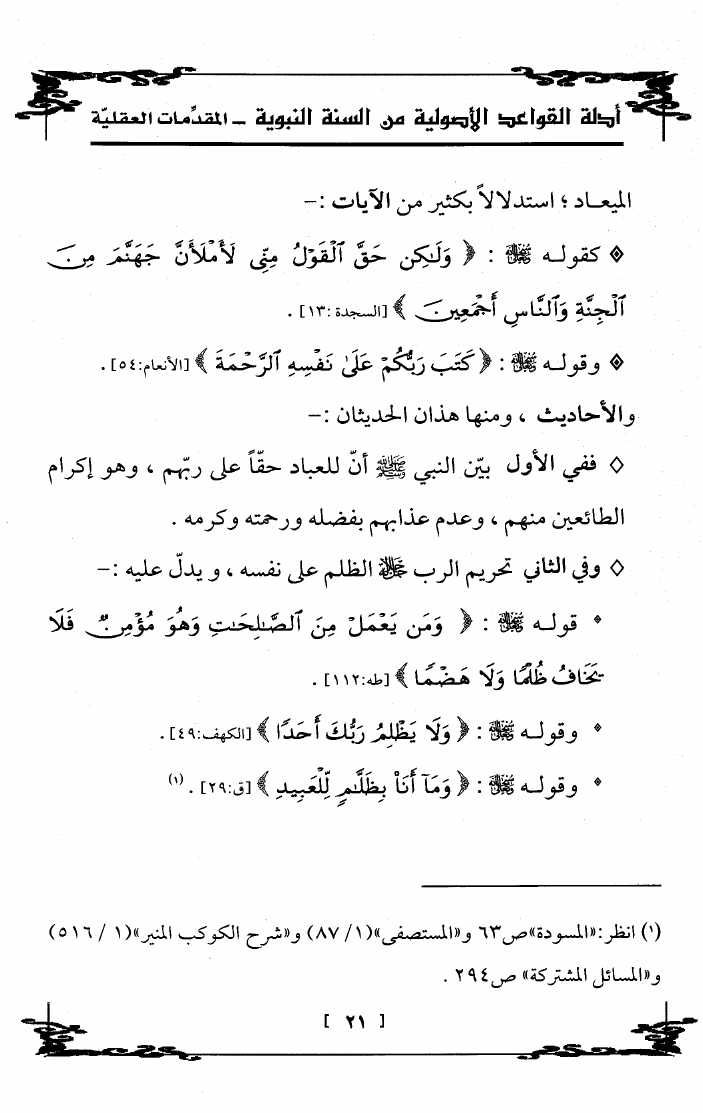 أدلة القواعد الأصولية من السنة النبوية ــ المقدِّمات العقليّة
الميعــاد ؛ استدلالاً بكثير من الآيات :–
كقولــه ﷻ : ﴿ وَلَٰكِنْ حَقَّ ٱلْقَوْلُ مِنِّى لَأَمْلَأَنَّ جَهَنَّمَ مِنَ
ٱلْجِنَّةِ وَٱلنَّاسِ أَجْمَعِينَ ﴾ [السجدة :١٣] .
وقولــه ﷻ : ﴿ كَتَبَ رَبُّكُمْ عَلَىٰ نَفْسِهِ ٱلرَّحْمَةَ ﴾ [الأنعام:٥٤] .
والأحاديث ، ومنها هذان الحديثان :–
◊ ففي الأول بيّن النبي ﷺ أنّ للعباد حقّاً على ربّهم ، وهو إكرام
الطائعين منهم ، وعدم عذابهم بفضله ورحمته وكرمه .
◊ وفي الثاني تحريم الرب ﷻ الظلم على نفسه ، ويدلّ عليه :–
قولــه ﷻ : ﴿ وَمَن يَعْمَلْ مِنَ ٱلصَّٰلِحَٰتِ وَهُوَ مُؤْمِنٌ فَلَا
يَخَافُ ظُلْمًا وَلَا هَضْمًا ﴾ [طه:١١٢] .
وقولــه ﷻ : ﴿ وَلَا يَظْلِمُ رَبُّكَ أَحَدًا ﴾ [الكهف:٤٩] .
وقولــه ﷻ : ﴿ وَمَآ أَنَا۠ بِظَلَّٰمٍ لِّلْعَبِيدِ ﴾ [ق:٢٩] . (١)
(١) انظر :«المسودة»ص٦٣ و«المستصفى»(١/ ٨٧) و«شرح الكوكب المنير»(١ / ٥١٦)
و«المسائل المشتركة» ص٢٩٤ .
[ ٢١ ]